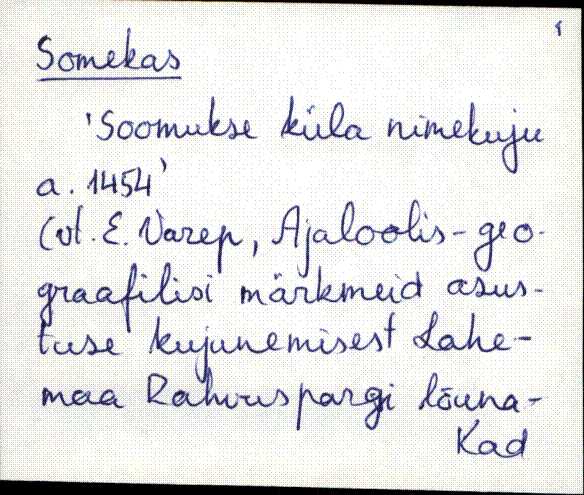 1
Somekas
'Soomukse küla nimekuju
a. 1454'
(vt. E. Varep, Ajaloolis-geo-
graafilisi märkmeid asus-
tuse kujunemisest Lahe-
maa Rahvuspargi lõuna-
Kad